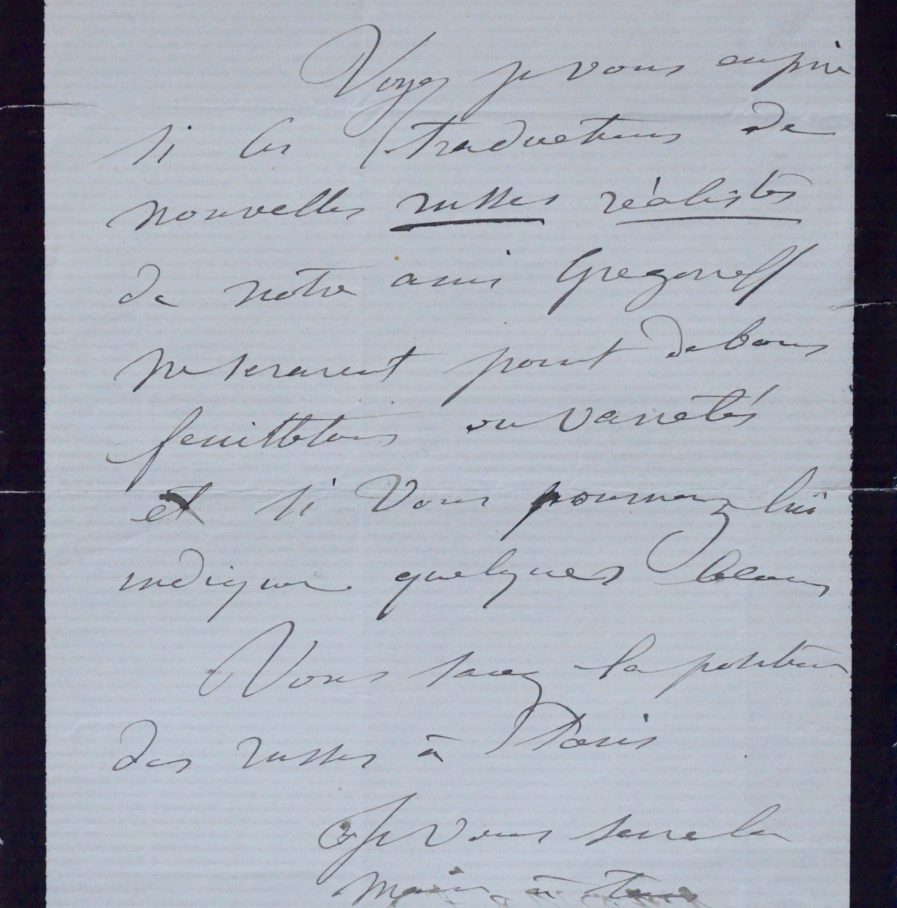 Voyez je vous en prie
si les traductions de
nouvelles russes réalistes
de notre ami Gregoreff
ne seraient point de bons
feuilletons ou variétés
et si vous pourriez lui
indiquer quelques
Vous savez la position
des russes à Paris
Je vous serre la
main à tous